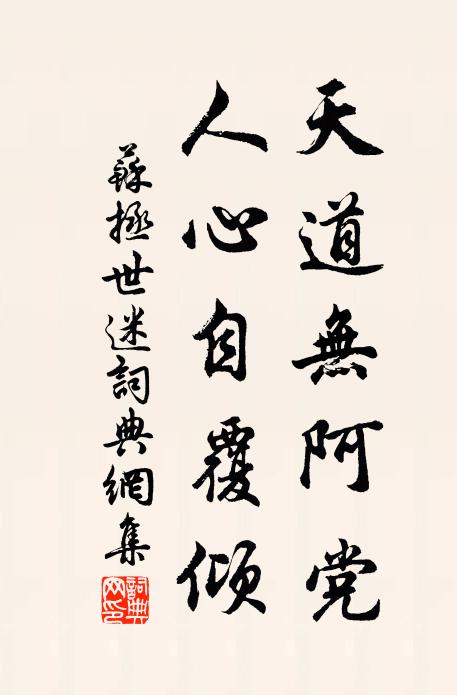 天道無阿党
人心自覆傾
蘇拯世迷詞典網集
詞典網印